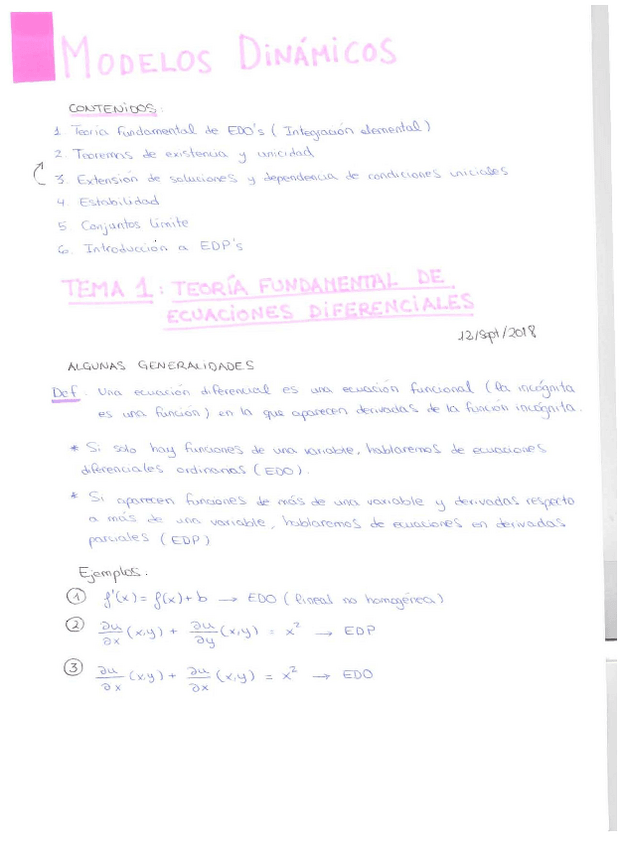 MODELOS DINÁMICOS
CONTENIDOS:
1. Teoría fundamental de EDO's (Integración elemental)
2. Teoremas de existencia y unicidad
3. Extensión de soluciones y dependencia de condiciones iniciales
4. Estabilidad
5. Conjuntos límite
6. Introducción a EDP's
TEMA 1: TEORÍA FUNDAMENTAL DE
ECUACIONES DIFERENCIALES
12/Sept/2018
ALGUNAS GENERALIDADES
Def. Una ecuación diferencial es una ecuación funcional (la incógnita
es una función) en la que aparecen derivadas de la función incógnita.
* Si solo hay funciones de una variable, hablaremos de ecuaciones
diferenciales ordinarias (EDO).
* Si aparecen funciones de más de una variable y derivadas respecto
a más de una variable, hablaremos de ecuaciones en derivadas
parciales (EDP)
Ejemplos:
① f'(x) = f(x) + b → EDO (lineal no homogénea)
② ∂u/∂x (x,y) + ∂u/∂y (x,y) = x² → EDP
③ ∂u/∂x (x,y) + ∂u/∂x (x,y) = x² → EDO